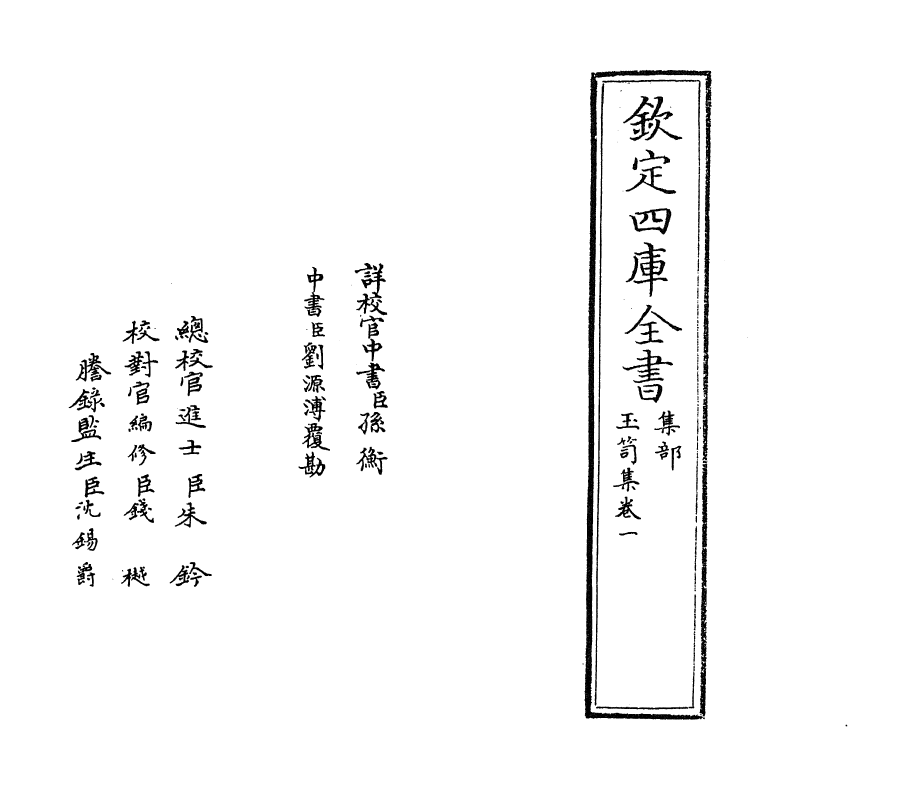 欽定四庫全書
集部
玉笥集卷一
詳校官中書臣孫衡
中書臣劉源溥覆勘
總校官進士臣朱鈐
校對官編修臣錢樾
謄錄監生臣沈錫爵